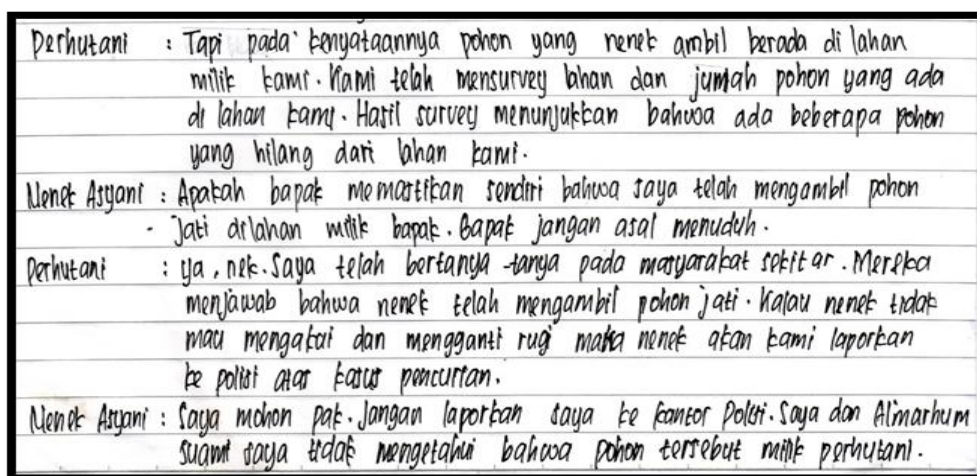 Perhutani : Tapi pada kenyataannya pohon yang nenek ambil berada di lahan
milik kami. Kami telah mensurvey lahan dan jumlah pohon yang ada
di lahan kami. Hasil survey menunjukkan bahwa ada beberapa pohon
yang hilang dari lahan kami.
Nenek Asyani : Apakah bapak memastikan sendiri bahwa saya telah mengambil pohon
- Jati dilahan milik bapak. Bapak jangan asal menuduh.
Perhutani : Ya, nek. Saya telah bertanya-tanya pada masyarakat sekitar. Mereka
menjawab bahwa nenek telah mengambil pohon jati. Kalau nenek tidak
mau mengakui dan mengganti rugi maka nenek akan kami laporkan
ke polisi atas kasus pencurian.
Nenek Asyani : Saya mohon pak. Jangan laporkan saya ke kantor Polisi. Saya dan Almarhum
suami saya tidak mengetahui bahwa pohon tersebut milik perhutani.